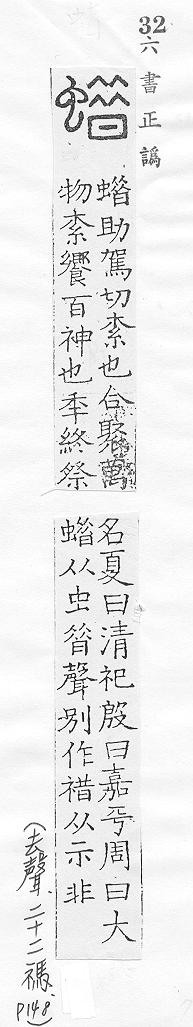 32 六書正譌
蜡
蜡助駕切索也合聚萬
物索饗百神也秊終祭
名夏曰清祀殷曰嘉平周曰大
蜡从虫昔聲別作䄍从示非
(去聲、二十二禡、P148)